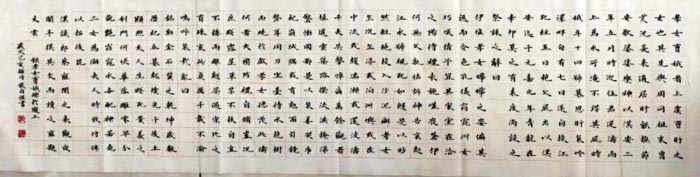 孝女曹娥者上虞曹盱之
女也其先與周同祖末胄
荒沈爰來適居盱能撫節
安歌婆娑樂神以漢安二
年五月時迎伍君逆濤而
上為水所淹不得其屍時
娥年十四號慕思盱哀吟
澤畔旬有七日遂自投江
死經五日抱父屍出以漢
安迄于元嘉元年青龍在
辛卯莫之有表度尚設之
祭誄之辭曰
伊惟孝女曄曄之姿偏其
返而令色孔儀窈窕淑女
巧笑倩兮宜其家室在洽
之陽待禮未施嗟喪蒼
伊何無父孰怙訴神告哀赴
江永號視死如歸是以眇
然輕絕投入沙泥翩翩孝女
乍沈乍浮或泊洲嶼或在
中流或趨湍瀨或還波濤
千夫失聲悼痛萬餘觀者
填道雲集路衢流淚掩涕
驚慟國都是以哀姜哭市
杞崩城隅或有剋面引鏡
剺耳用刀坐臺待水抱樹
而燒於戲孝女德茂此儔
何者大國防禮自修豈況
庶賤露屋草茅不扶自直
不鏤而雕越梁過宋比之
有殊哀此貞厲千載不渝
嗚呼哀哉辭曰
銘勒金石質之乾坤歲數
曆祀丘墓起墳光于后土
顯昭天人生賤死貴義之
利門何悵華落雕零早分
葩豔窈窕永世配神若堯
二女為湘夫人時效彷彿
以招後昆
漢議郎蔡雍聞之來觀夜
闇手摸其文而讀之雍題
文云
錄孝女曹娥碑於滬上
歲次己亥 戴自保書